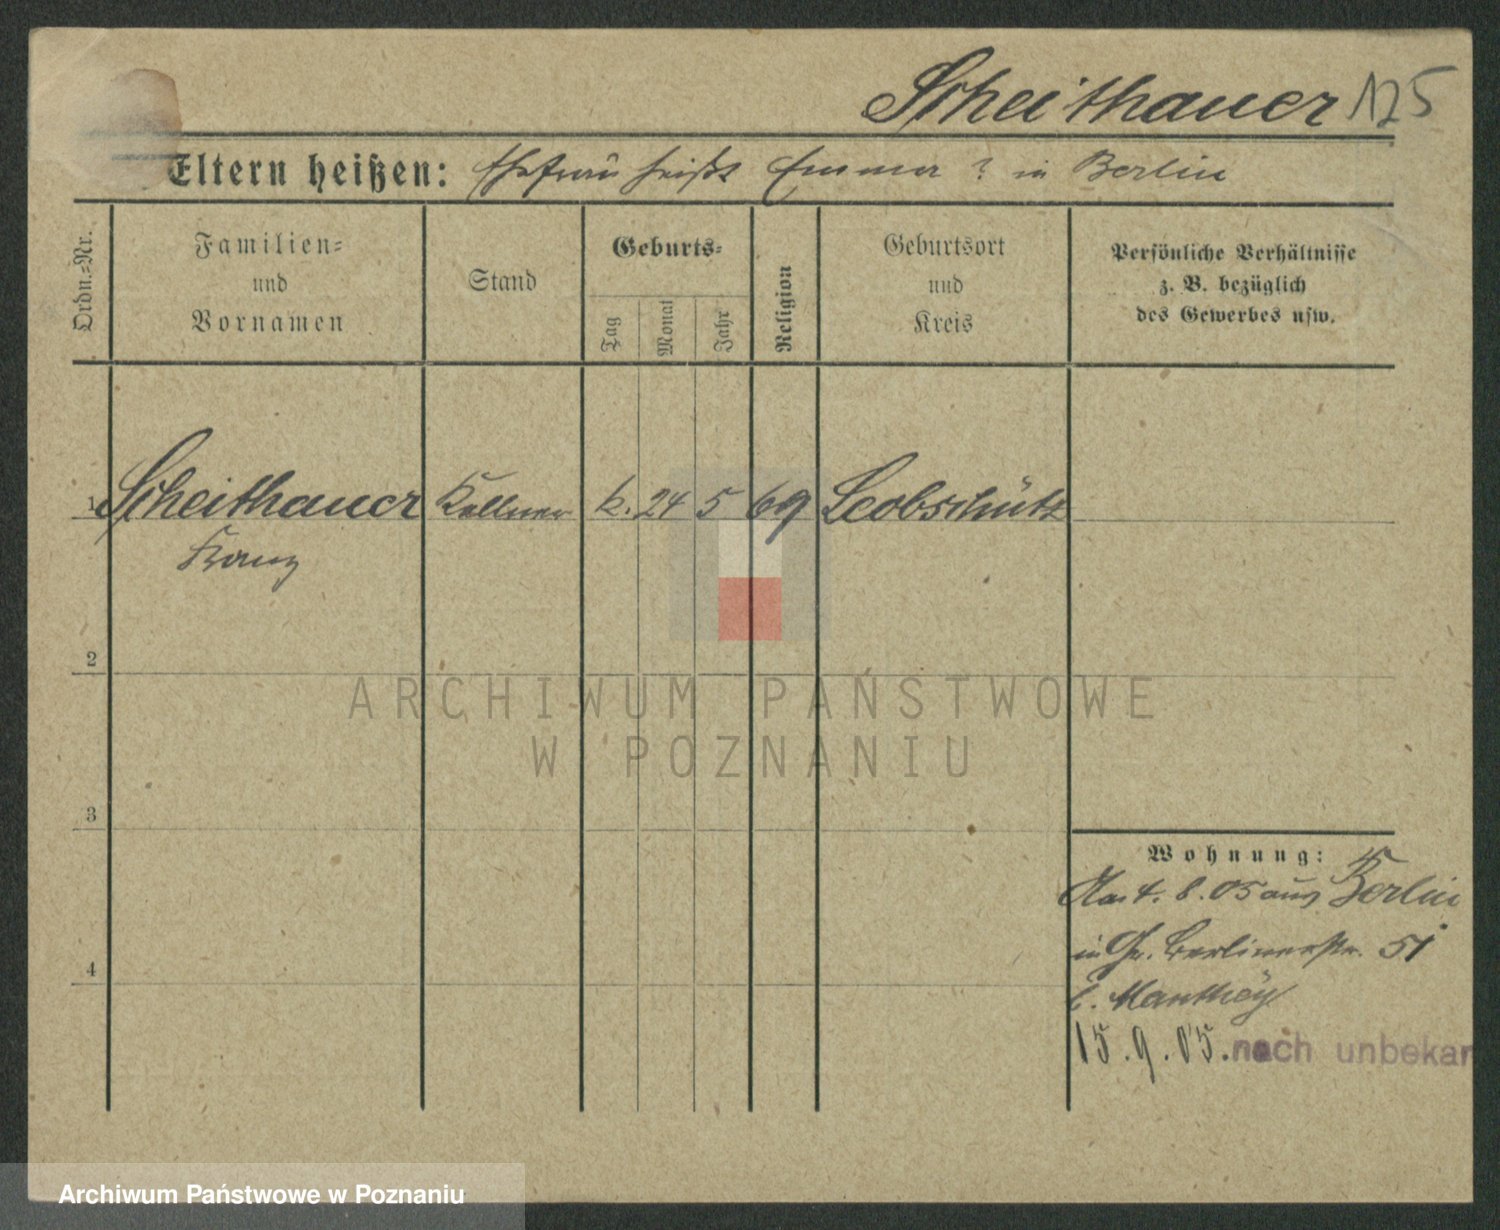 Scheithauer 125
Eltern heißen: Ehefrau heißt Emma ? in Berlin
Ordn.=Nr.
Familien=
und
Vornamen
Stand
Geburts=
Tag
Monat
Jahr
Religion
Geburtsort
und
Kreis
Persönliche Verhältnisse
z. B. bezüglich
des Gewerbes usw.
1 Scheithauer Kellner k. 24 5 69 Leobschütz
Franz
2
ARCHIWUM PAŃSTWOWE
W POZNANIU
3
Wohnung:
4. 8. 05 aus Berlin
in Gr. Berlinerstr. 51
b. Manthey
4
15.9.05. nach unbekan
Archiwum Państwowe w Poznaniu